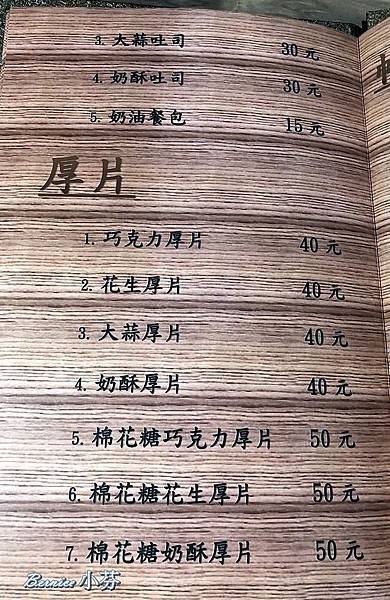 3. 大蒜吐司 30 元
4. 奶酥吐司 30 元
5. 奶油餐包 15 元
厚片
1. 巧克力厚片 40 元
2. 花生厚片 40 元
3. 大蒜厚片 40 元
4. 奶酥厚片 40 元
5. 棉花糖巧克力厚片 50 元
6. 棉花糖花生厚片 50 元
7. 棉花糖奶酥厚片 50 元
Bernice 小芬